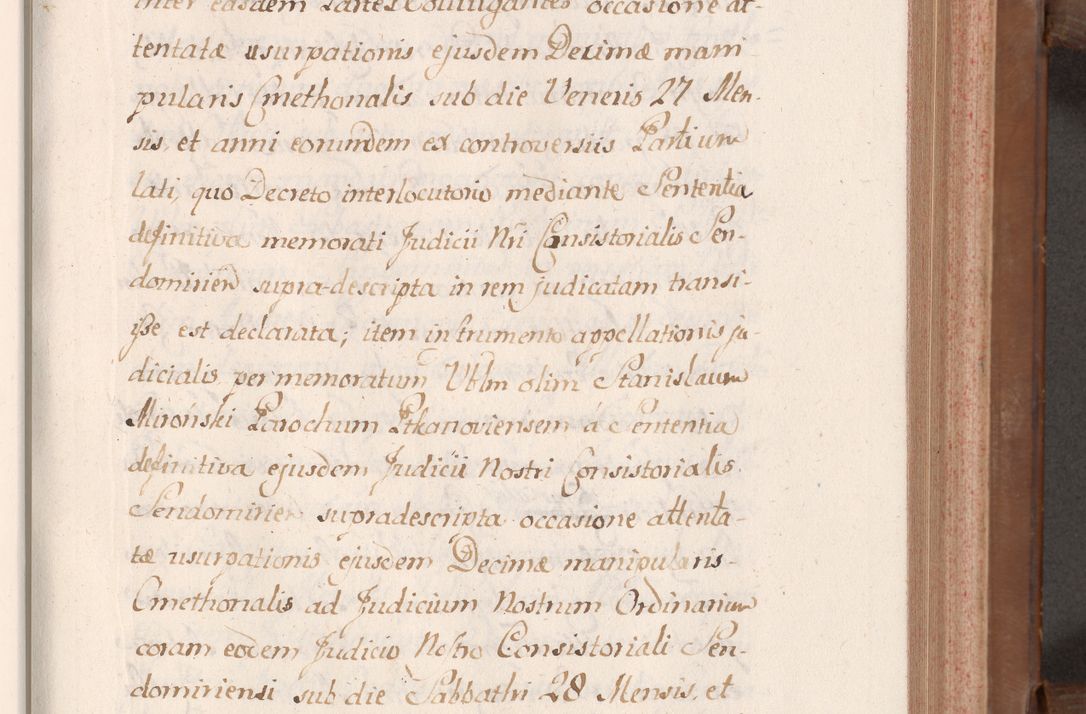 inter easdem Partes Colliugantes occasione at-
tentatæ usurpationis ejusdem Decimæ mani
pularis Cmethonalis sub die Veneris 27 Men-
sis et anni eorundem ex controversiis Partium
lati, quo Decreto interlocutorio mediante Sententia
definitiva memorati Judicii Nri Consistorialis Sen-
domirien supra-descripta in rem judicatam transi-
iße est declarata; item instrumento appellationis ju-
dicialis per memoratum Vblm olim Stanislaum
Miroński Parochum Ptkanoviensem á Sententia
definitiva ejusdem Judicii Nostri Consistorialis
Sendomirien supradescripta occasione attenta-
tæ usurpationis ejusdem Decimæ manipularis-
Cmethonalis ad Judicium Nostrum Ordinarium
coram eodem Judicio Nostro Consistoriali Sen-
domiriensi sub die Sabbathi 28 Mensis, et